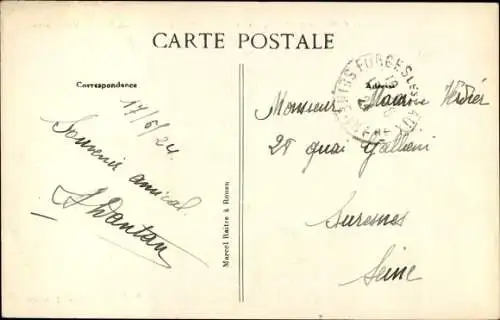 CARTE POSTALE
Correspondance
17/6/24.
Souvenir amical.
Marcel Baitre à Rouen
FORGES LES
Adresse
Monsieur Verdier
28 quai Galliéni
Suresnes
Seine